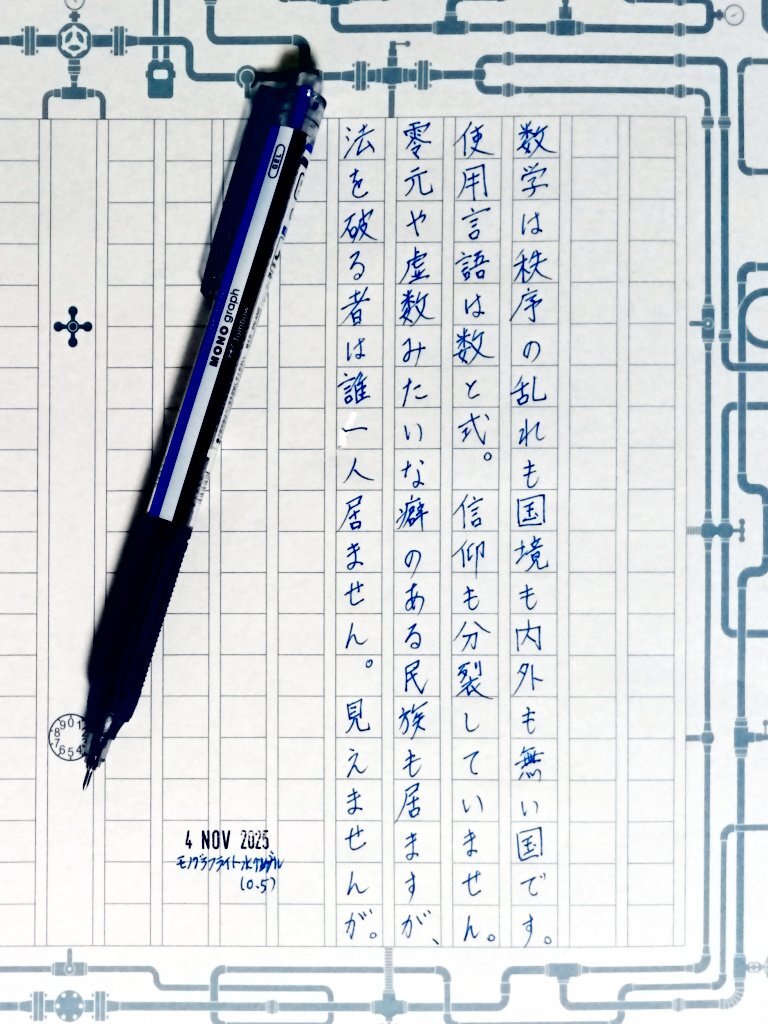 数学は秩序の乱れも国境も内外も無い国です。
使用言語は数と式。信仰も分裂していません。
零元や虚数みたいな癖のある民族も居ますが、
法を破る者は誰一人居ません。見えませんが。
GEL
MONO graph
4 NOV 2025
(0.5)